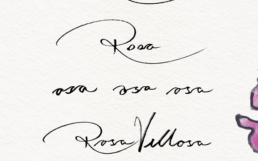 Rosa
osa osa osa
Rosa Vellosa